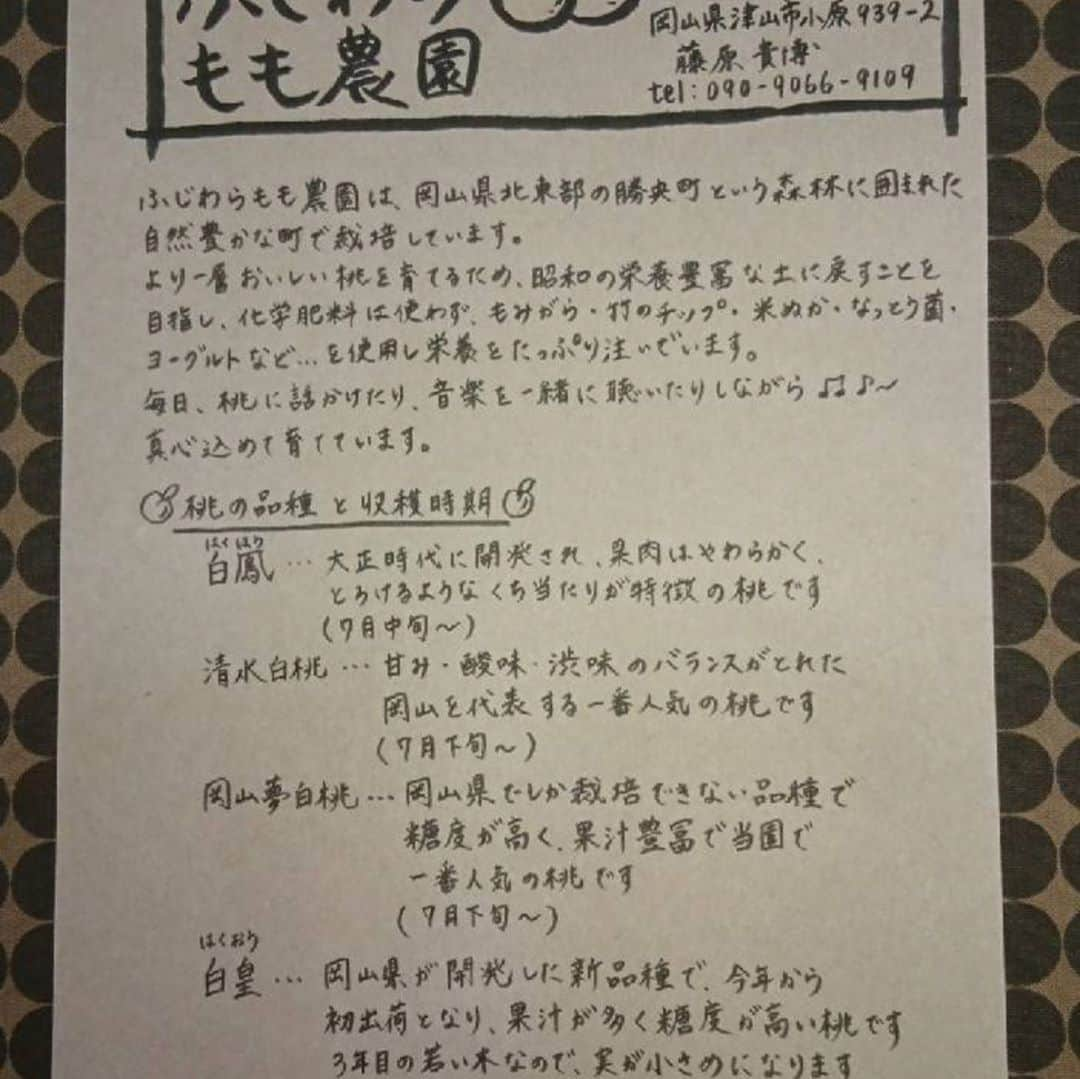 ふじわら
もも農園
岡山県津山市小原939-2
藤原貴博
tel:090-9066-9109
ふじわらもも農園は、岡山県北東部の勝央町という森林に囲まれた
自然豊かな町で栽培しています。
より一層おいしい桃を育てるため、昭和の栄養豊富な土に戻すことを
目指し、化学肥料は使わず、もみがら・竹のチップ・米ぬか・なっとう菌・
ヨーグルトなど…を使用し栄養をたっぷり注いでいます。
毎日、桃に話かけたり、音楽を一緒に聴いたりしながら♫♪〜
真心込めて育てています。
桃の品種と収穫時期
はくほう
白鳳…大正時代に開発され、果肉はやわらかく、
とろけるようなくち当たりが特徴の桃です
(7月中旬〜)
清水白桃…甘み・酸味・渋味のバランスがとれた
岡山を代表する一番人気の桃です
(7月下旬〜)
岡山夢白桃…岡山県でしか栽培できない品種で
糖度が高く、果汁豊富で当園で
一番人気の桃です
(7月下旬〜)
はくおう
白皇…岡山県が開発した新品種で、今年から
初出荷となり、果汁が多く糖度が高い桃です
3年目の若い木なので、実が小さめになります